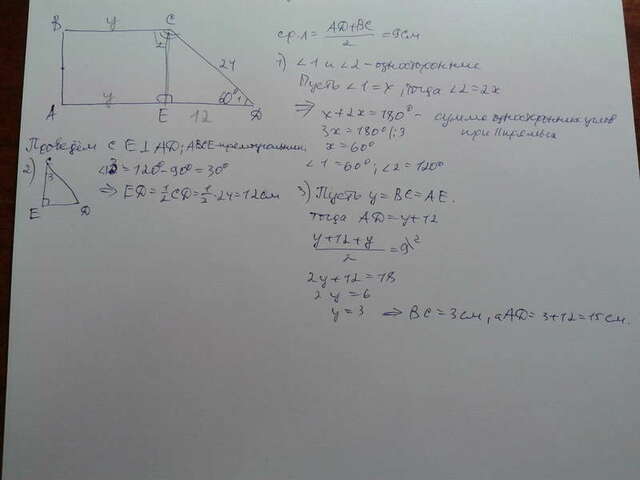 B y C
2
24
A y E 12 D
60° 1
ср.л = AD+BC / 2 = 9см
1) ∠1 и ∠2 - односторонние
Пусть ∠1 = x, тогда ∠2 = 2x
⇒ x + 2x = 180° - сумма односторонних углов
3x = 180° |:3 при || прямых
x = 60°
∠1 = 60°; ∠2 = 120°
Проведём CE ⊥ AD; ABCE-прямоугольник.
2) C
3
E D
∠3 = 120° - 90° = 30°
⇒ ED = 1/2 CD = 1/2 · 24 = 12 см
3) Пусть y = BC = AE.
тогда AD = y + 12
y + 12 + y / 2 = 9 \2
2y + 12 = 18
2y = 6
y = 3 ⇒ BC = 3 см, а AD = 3 + 12 = 15 см.